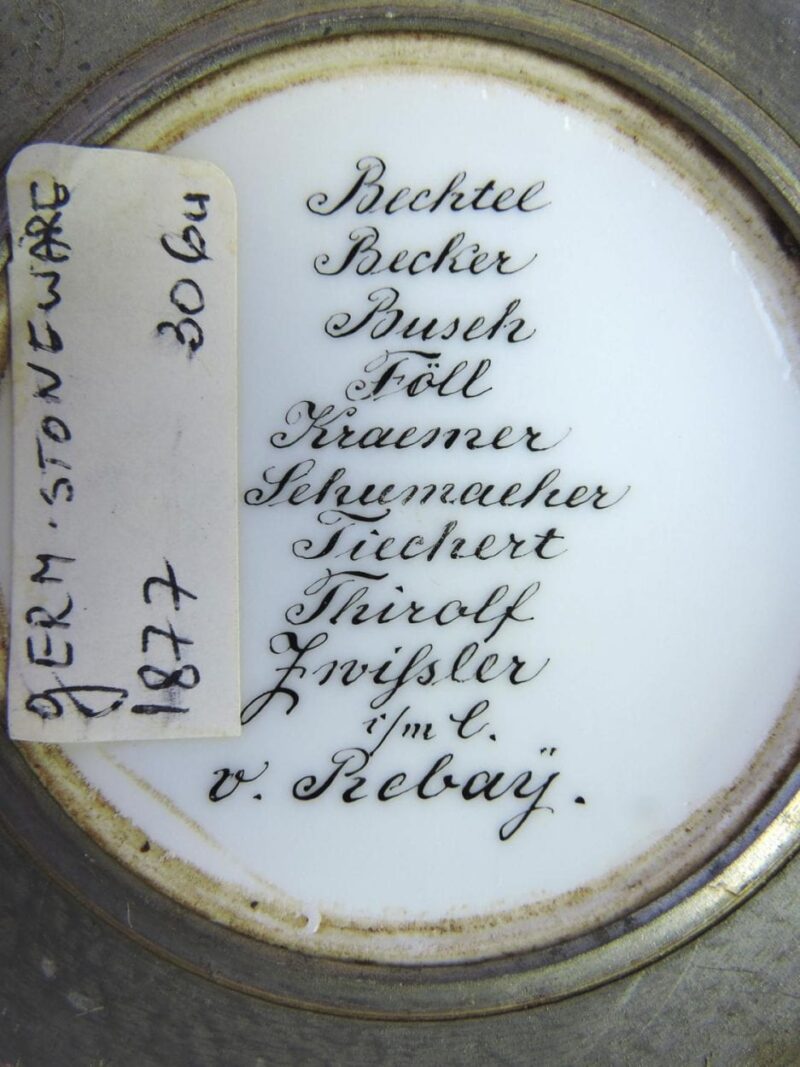 Bechtel
Becker
Busch
Föll
Kraemer
Schumacher
Tiechert
Thirolf
Zwiſsler
i/m l.
v. Rebaÿ.
GERM. STONEWARE
1877